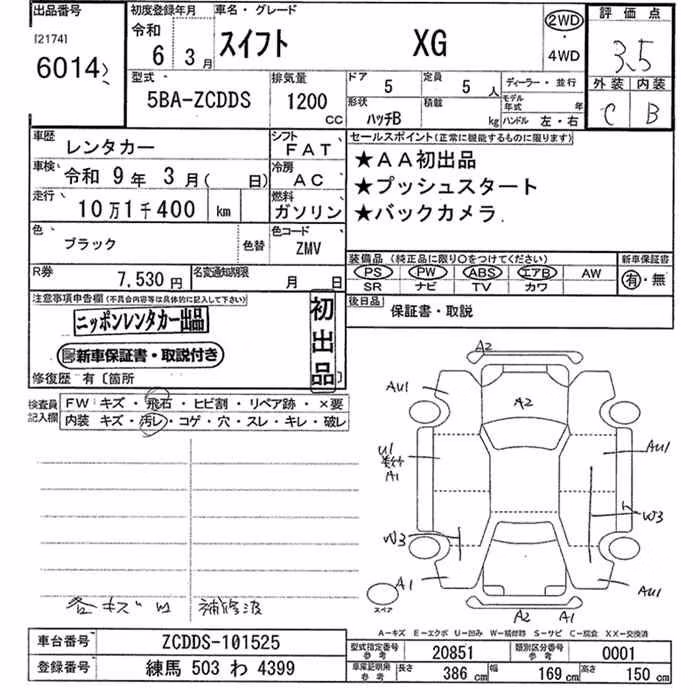 出品番号
[2174]
6014
初度登録年月
令和
6 3月
車名・グレード
スイフト XG
2WD
・
4WD
評価点
3.5
外装 内装
C B
型式
5BA-ZCDDS
排気量
1200
CC
ドア 5
定員 5人
形状 ハッチB
積載 kg
ディーラー・並行
モデル年式 年
ハンドル 左・右
車歴 レンタカー
シフト FAT
車検 令和 9年 3月( 日)
冷房 AC
走行 10万1千400 km
燃料 ガソリン
色 ブラック 色替
色コード ZMV
R券 7,530円
名変通知期限 月 日
セールスポイント(正常に機能するものに限ります)
★AA初出品
★プッシュスタート
★バックカメラ
装備品(純正品に限り○をつけてください)
新車保証書
PS PW ABS エアB AW
SR ナビ TV カワ
有・無
後日品 保証書・取説
注意事項申告欄(不具合内容等は具体的に記入して下さい)
ニッポンレンタカー出品
新車保証書・取説付き
初出品
修復歴 有〔箇所 〕
検査員記入欄
FW: キズ・飛石・ヒビ割・リペア跡・×要
内装 キズ・汚レ・コゲ・穴・スレ・キレ・破レ
A2
AU1
A2
U1
A1
AU1
W3
W3
A1
AU1
スペア
A2 A1
各キズ凹 補修波
A-キズ E-エクボ U-凹み W-補修跡 S-サビ C-腐食 XX-交換済
車台番号 ZCDDS-101525
登録番号 練馬 503 わ 4399
型式指定番号 参考 20851
類別区分番号 参考 0001
車庫証明用 参考 長さ 386 cm 幅 169 cm 高さ 150 cm